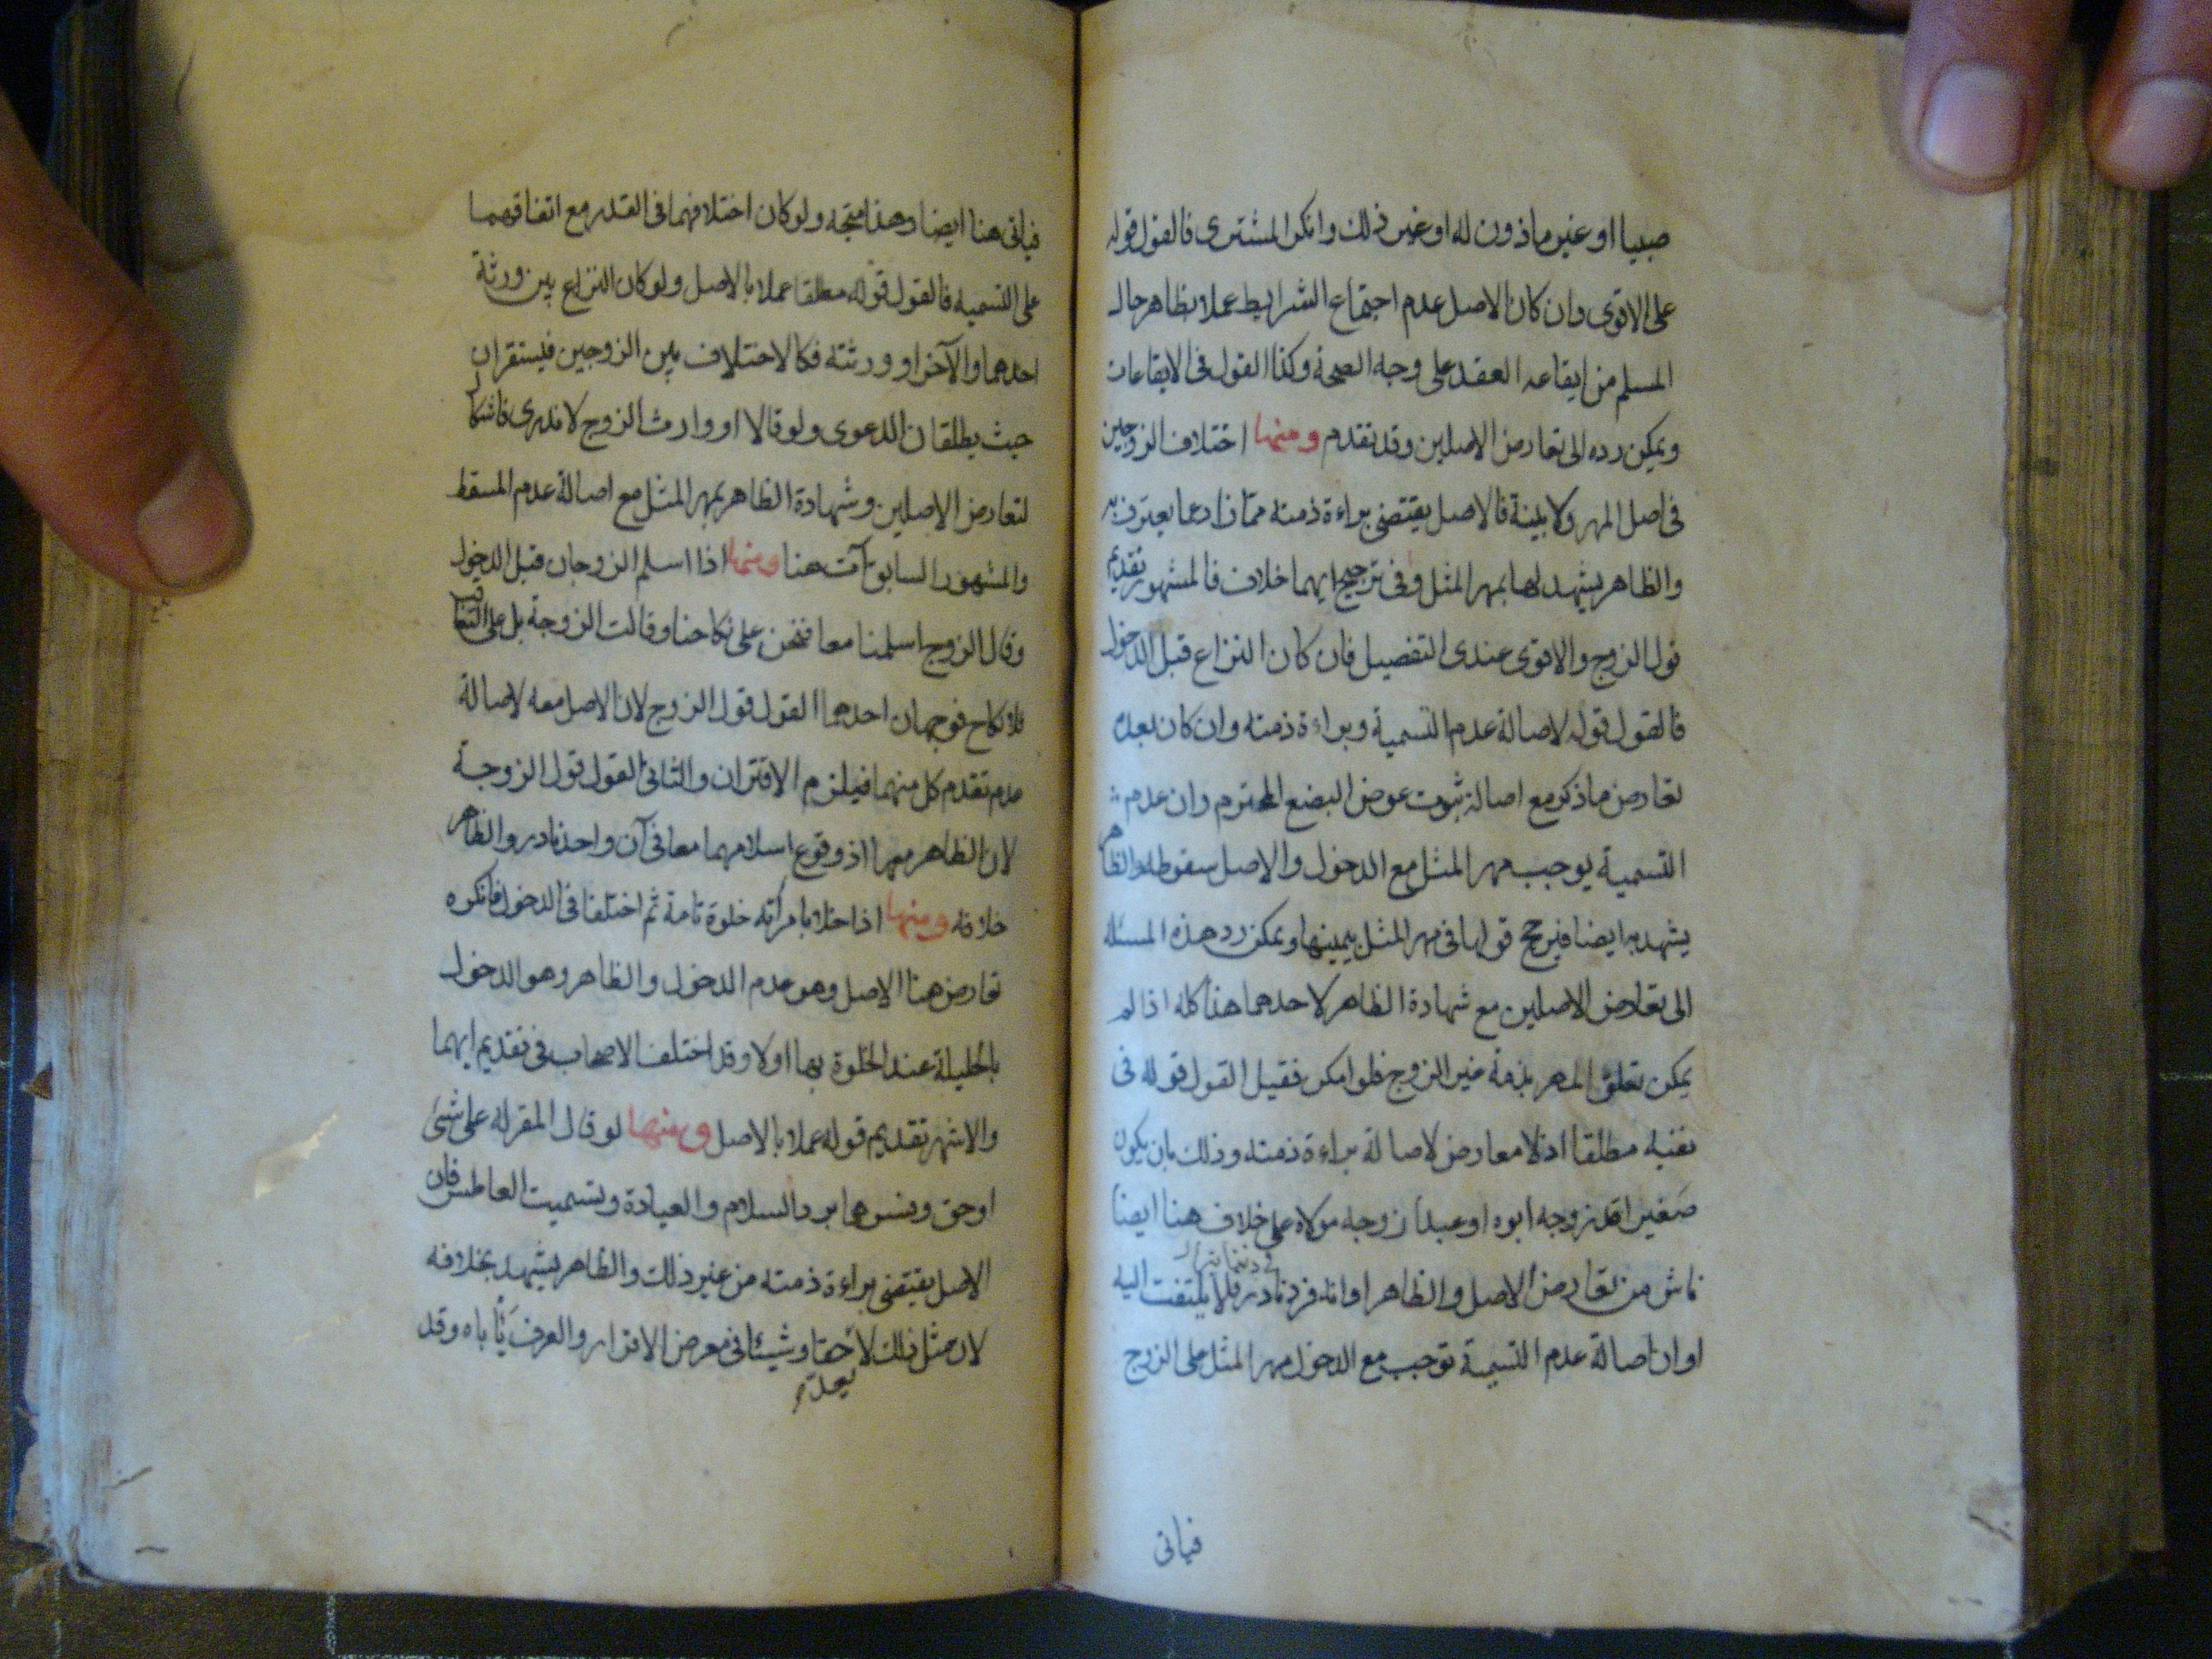 صبيا او غير ماذون له او غير ذلك وانكر المشترى فالقول قوله
على الاقوى وان كان الاصل عدم اجتماع الشرايط عملا بظاهر حال
المسلم من ايقاعه العقد على وجه الصحة وكذا القول فى الايقاعات
ويمكن رده الى تعارض الاصلين وقد تقدم ومنها اختلاف الزوجين
فى اصل المهر ولا بينة فالاصل يقتضى براءة ذمته مما زاد عما يعترف به
والظاهر يشهد لها بمهر المثل وفى ترجيح ايهما خلاف فالمشهور تقديم
قول الزوج والاقوى عندى التفصيل فان كان النزاع قبل الدخول
فالقول قوله لاصالة عدم التسمية وبراءة ذمته وان كان بعده
تعارض ما ذكر مع اصالة ثبوت عوض البضع المحترم وان عدم
التسمية يوجب مهر المثل مع الدخول والاصل سقوطه والظاهر
يشهد به ايضا فيرجح قولها فى مهر المثل بيمينها ويمكن رد هذه المسئلة
الى تعارض الاصلين مع شهادة الظاهر لاحدهما هذا كله اذا لم
يمكن تعلق المهر بذمة غير الزوج فلو امكن فقيل القول قوله فى
نفيه مطلقا اذ لا معارض لاصالة براءة ذمته وذلك بان يكون
صغيرا قد زوجه ابوه او عبدا زوجه مولاه على خلاف هنا ايضا
ناش من تعارض الاصل والظاهر او انه فرد نادر فلا يلتفت اليه
او ان اصالة عدم التسمية توجب مع الدخول مهر المثل على الزوج
فياتى
فياتى هنا ايضا وهذا متجه ولو كان اختلافهما فى القدر مع اتفاقهما
على التسمية فالقول قوله مطلقا عملا بالاصل ولو كان النزاع بين ورثة
احدهما والآخر او ورثته فكالاختلاف بين الزوجين فيستقران
حيث يطلقان الدعوى ولو قالا او وارث الزوج لا ندرى فاشكال
لتعارض الاصلين وشهادة الظاهر بمهر المثل مع اصالة عدم المسقط
والمشهور السابق آت هنا ومنها اذا اسلم الزوجان قبل الدخول
وقال الزوج اسلمنا معا فنحن على نكاحنا وقالت الزوجة بل على التعاقب
فلا نكاح فوجهان احدهما القول قول الزوج لان الاصل معه لاصالة
عدم تقدم كل منهما فيلزم الاقتران والثانى القول قول الزوجة
لان الظاهر معها اذ وقوع اسلامهما معا فى آن واحد نادر والظاهر
خلافه ومنها اذا خلا بامرأته خلوة تامة ثم اختلفا فى الدخول فانكره
تعارض هنا الاصل وهو عدم الدخول والظاهر وهو الدخول
بالحليلة عند الخلوة بها اولا وقد اختلف الاصحاب فى تقديم ايهما
والاشهر تقديم قوله عملا بالاصل ومنها لو قال المقر له على شئ
او حق وفسرهما برد السلام والعيادة وتسميت العاطس فان
الاصل يقتضى براءة ذمته من غير ذلك والظاهر يشهد بخلافه
لان مثل ذلك لا حقا وشيئا فى معرض الاقرار والعرف يأباه وقد
يعد